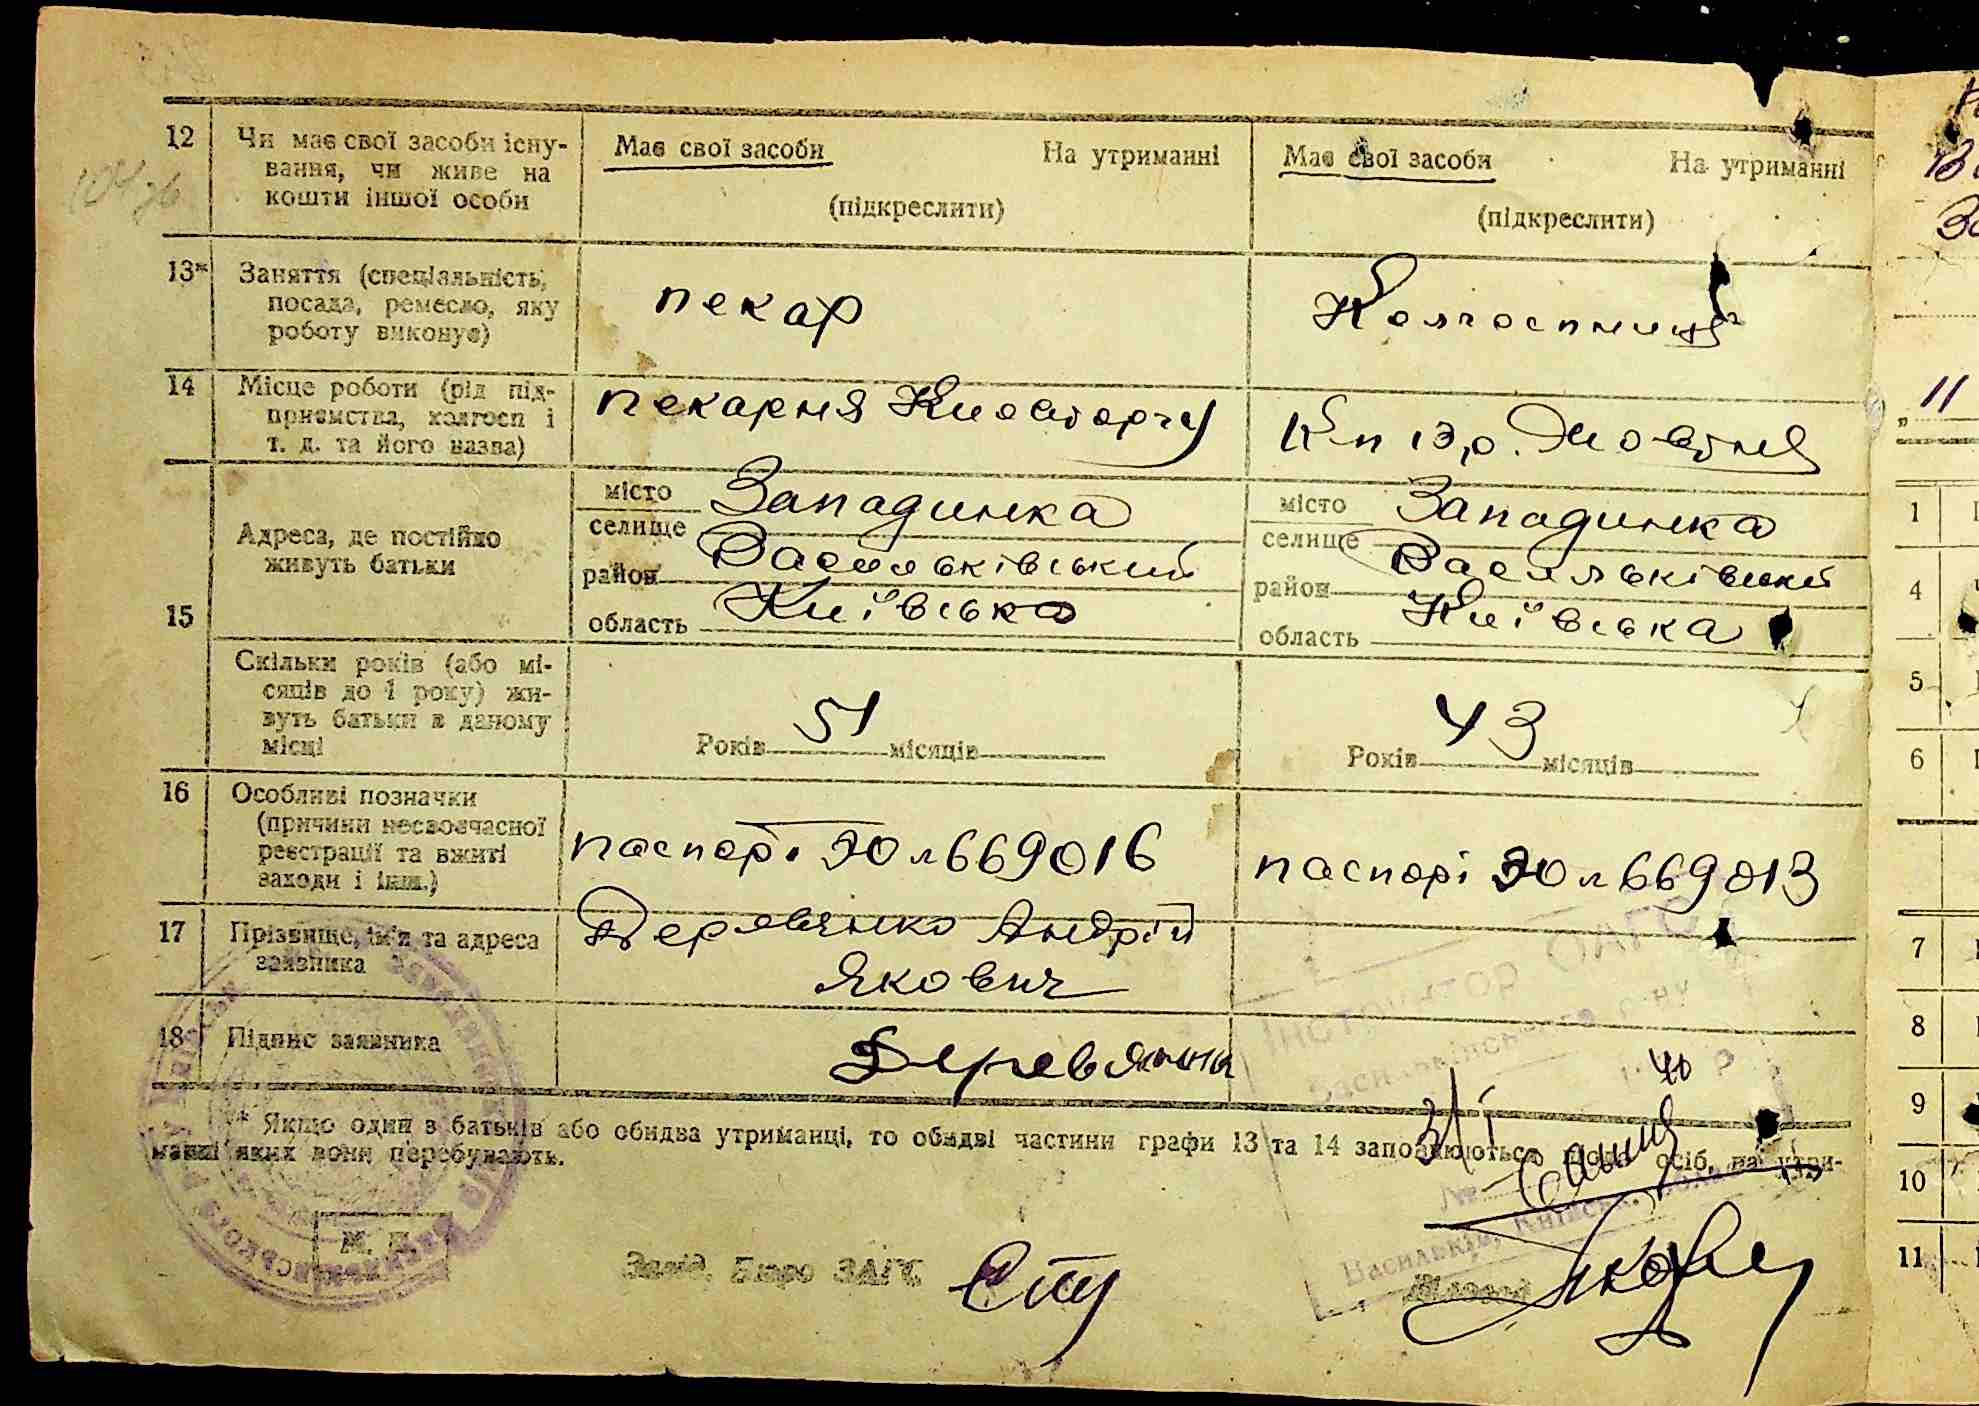 12 Чи має свої засоби існу-
вання, чи живе на
кошти іншої особи
Має свої засоби На утриманні
(підкреслити)
Має свої засоби На утриманні
(підкреслити)
13* Заняття (спеціальність,
посада, ремесло, яку
роботу виконує)
пекар
Колгоспниця
14 Місце роботи (рід під-
приємства, колгосп і
т. д. та його назва)
пекарня
15
Адреса, де постійно
живуть батьки
місто
селище
Западинка
район Васильківський
область Київська
місто
селище
Западинка
район Васильківський
область Київська
Скільки років (або мі-
сяців до 1 року) жи-
вуть батьки в даному
місці
Років 51 місяців
Років 43 місяців
16 Особливі позначки
(причини несвоєчасної
реєстрації та вжиті
заходи і інш.)
669016
669013
17 Прізвище, ім'я та адреса
заявника
Деревянко Андрій
Якович
18 Підпис заявника
* Якщо один з батьків або обидва утриманці, то обидві частини графи 13 та 14 заповнюються щодо осіб, на утри-
манні яких вони перебувають.
М. П.
Завід. Бюро ЗАГС
Інструктор ОАГС
Васильківського р-ну
40 р
№
Васильків, Київськ.
11
1
4
5
6
7
8
9
10
11